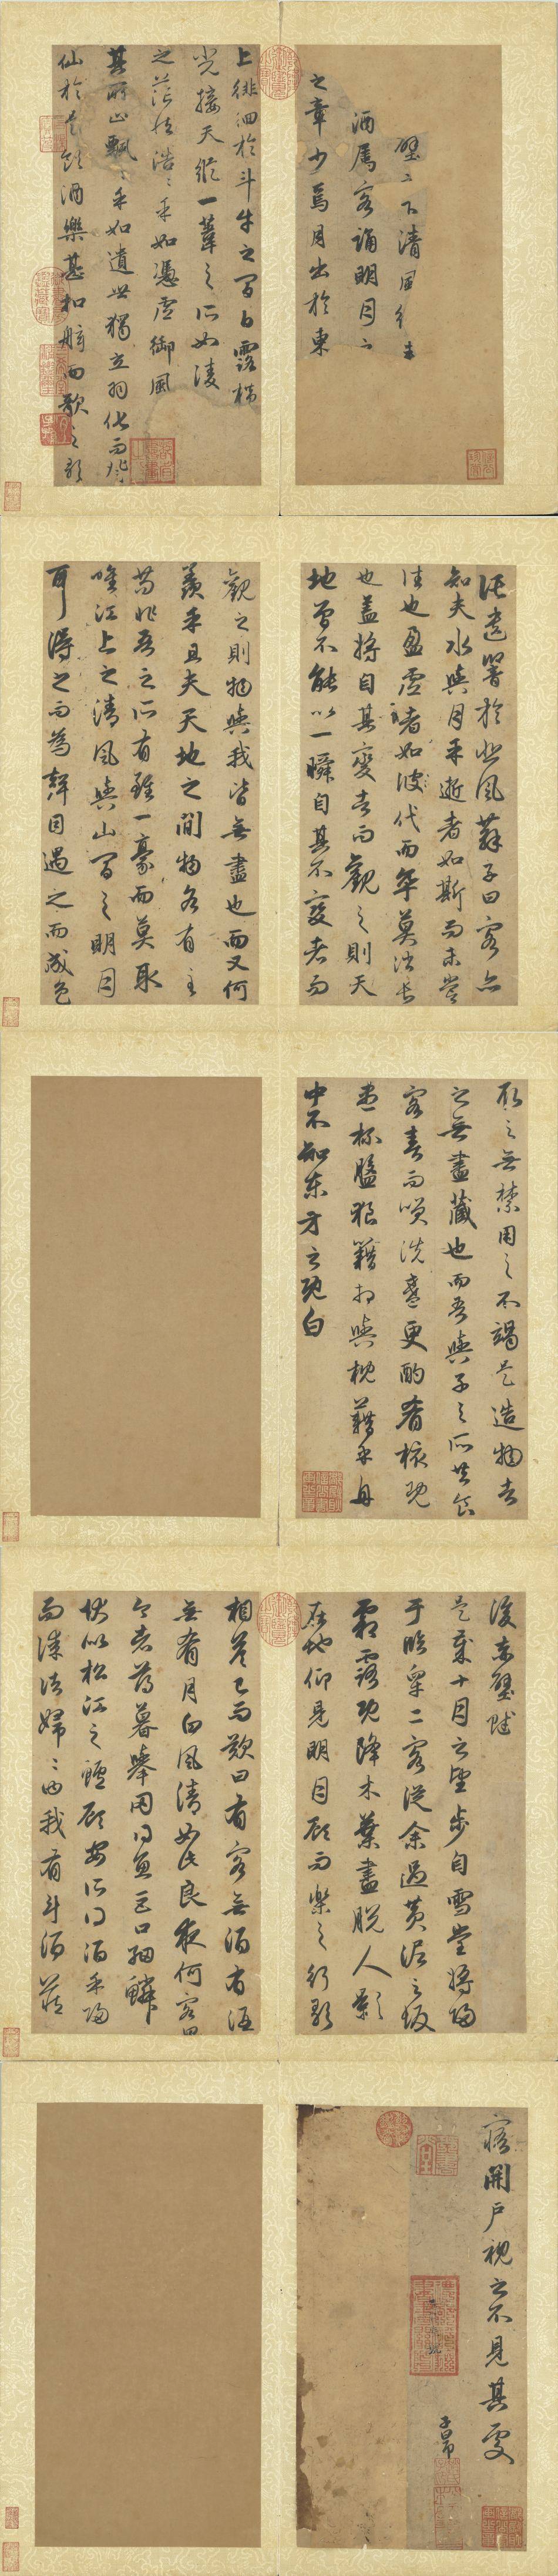 壁之下清風徐來
酒屬客誦明月之
之章少焉月出於東
上徘徊於斗牛之間白露橫
光接天縱一葦之所如凌
之茫然浩〻乎如憑虛御風
其所止飄〻乎如遺世獨立羽化而登
仙於是飲酒樂甚扣舷而歌之歌
託遺響於悲風蘇子曰客亦
知夫水與月乎逝者如斯而未嘗
往也盈虛者如彼代而卒莫消長
也蓋將自其變者而觀之則天
地曾不能以一瞬自其不變者而
觀之則物與我皆無盡也而又何
羨乎且夫天地之間物各有主
苟非吾之所有雖一豪而莫取
唯江上之清風與山間之明月
耳得之而為聲目遇之而成色
取之無禁用之不竭是造物者
之無盡藏也而吾與子之所共食
客喜而笑洗盞更酌肴核既
盡杯盤狼籍相與枕藉乎舟
中不知東方之既白
後赤壁賦
是歲十月之望步自雪堂將歸
于臨皋二客從余過黃泥之坂
霜露既降木葉盡脫人影
在地仰見明月顧而樂之行歌
相答已而歎曰有客無酒有酒
無肴月白風清如此良夜何客曰
今者薄暮舉網得魚巨口細鱗
狀似松江之鱸顧安所得酒乎歸
而謀諸婦〻曰我有斗酒藏
寤開戶視之不見其處
子昂